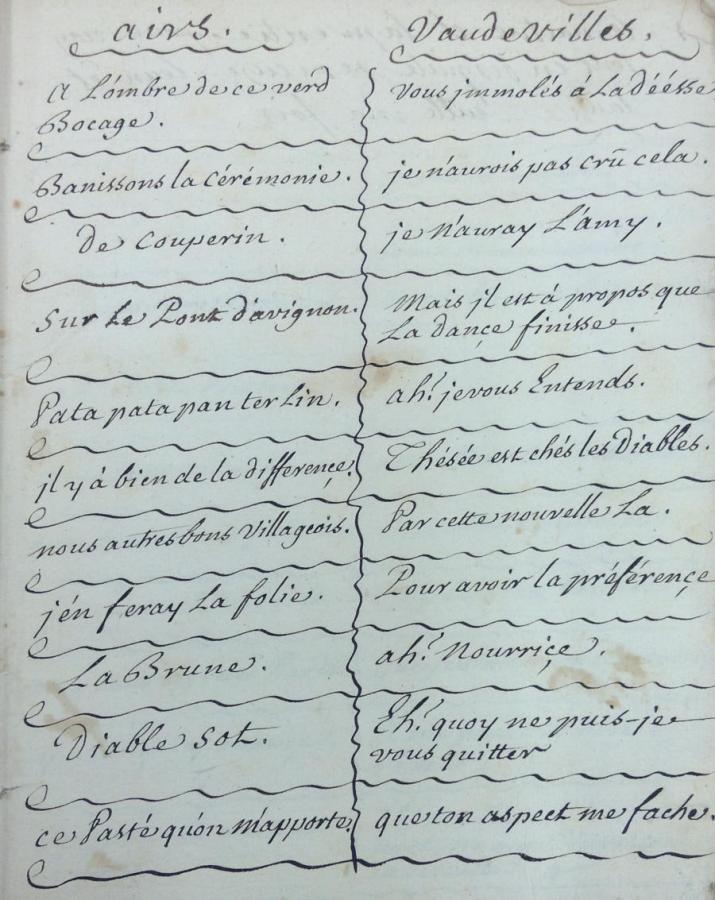 airs.
Vaudevilles.
A L'ómbre de ce verd
Bocage.
Vous jmmolés á La déésse
Banissons la Cérémonie.
je n'aurois pas crû cela.
De Couperin.
je N'auray L'amy.
Sur Le Pont d'avignon.
Mais jl est á propos que
La dançe finisse.
Pata pata pan ter Lin.
ah! je vous Entends.
jl y á bien de la differençe.
Thésée est chés les Diables.
nous autres bons Villageois.
Par cette nouvelle La.
j'én feray La folie.
Pour avoir la préférençe
La Brune.
ah! Nourriçe.
Diable Sot.
Eh! quoy ne puis-je
vous quitter
ce Pasté qu'on m'apporte.
que ton aspect me fache.